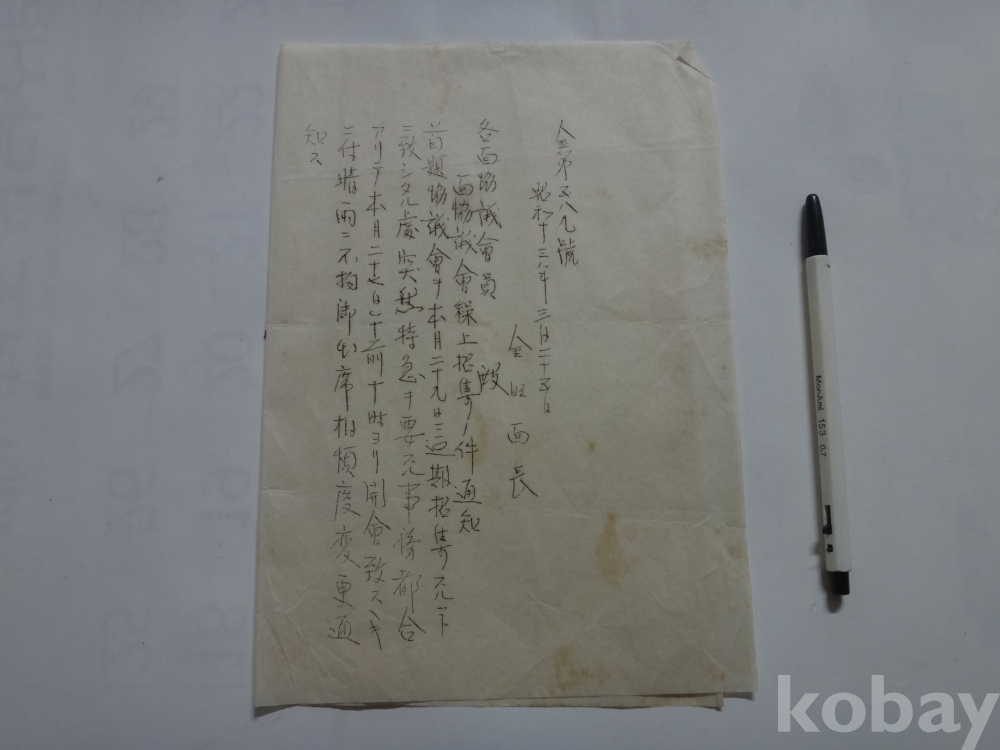 金第五八九號
昭和十三年三月二十五日
金旺面長
各面協議會員 殿
面協議會繰上招集ノ件通知
首題協議會ヲ本月二十九日ニ延期招集スル
ニ致シタル處突然特急ヲ要スル事務都合
アリテ本月二十七日午前十時ヨリ開會致スヘキ
ニ付晴雨ニ不拘御出席相煩度変更通
知ス
MonAmi 153 0.7
kobay